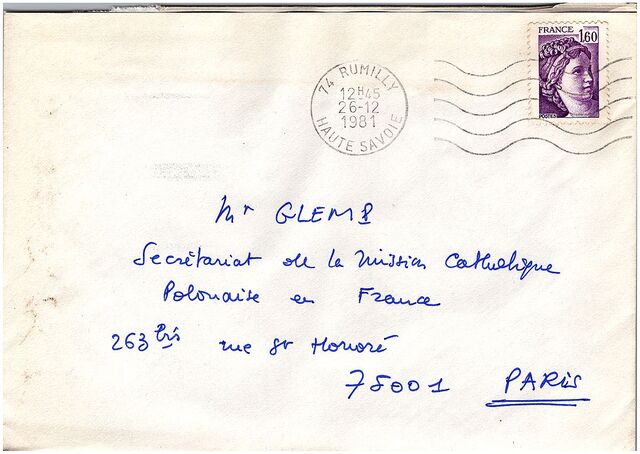 FRANCE
1,60
POSTES
74 RUMILLY
12H45
26-12
1981
HAUTE SAVOIE
Mr GLEMP
Secrétariat de la Mission Catholique
Polonaise en France
263 bis rue St Honoré
75001 PARIS